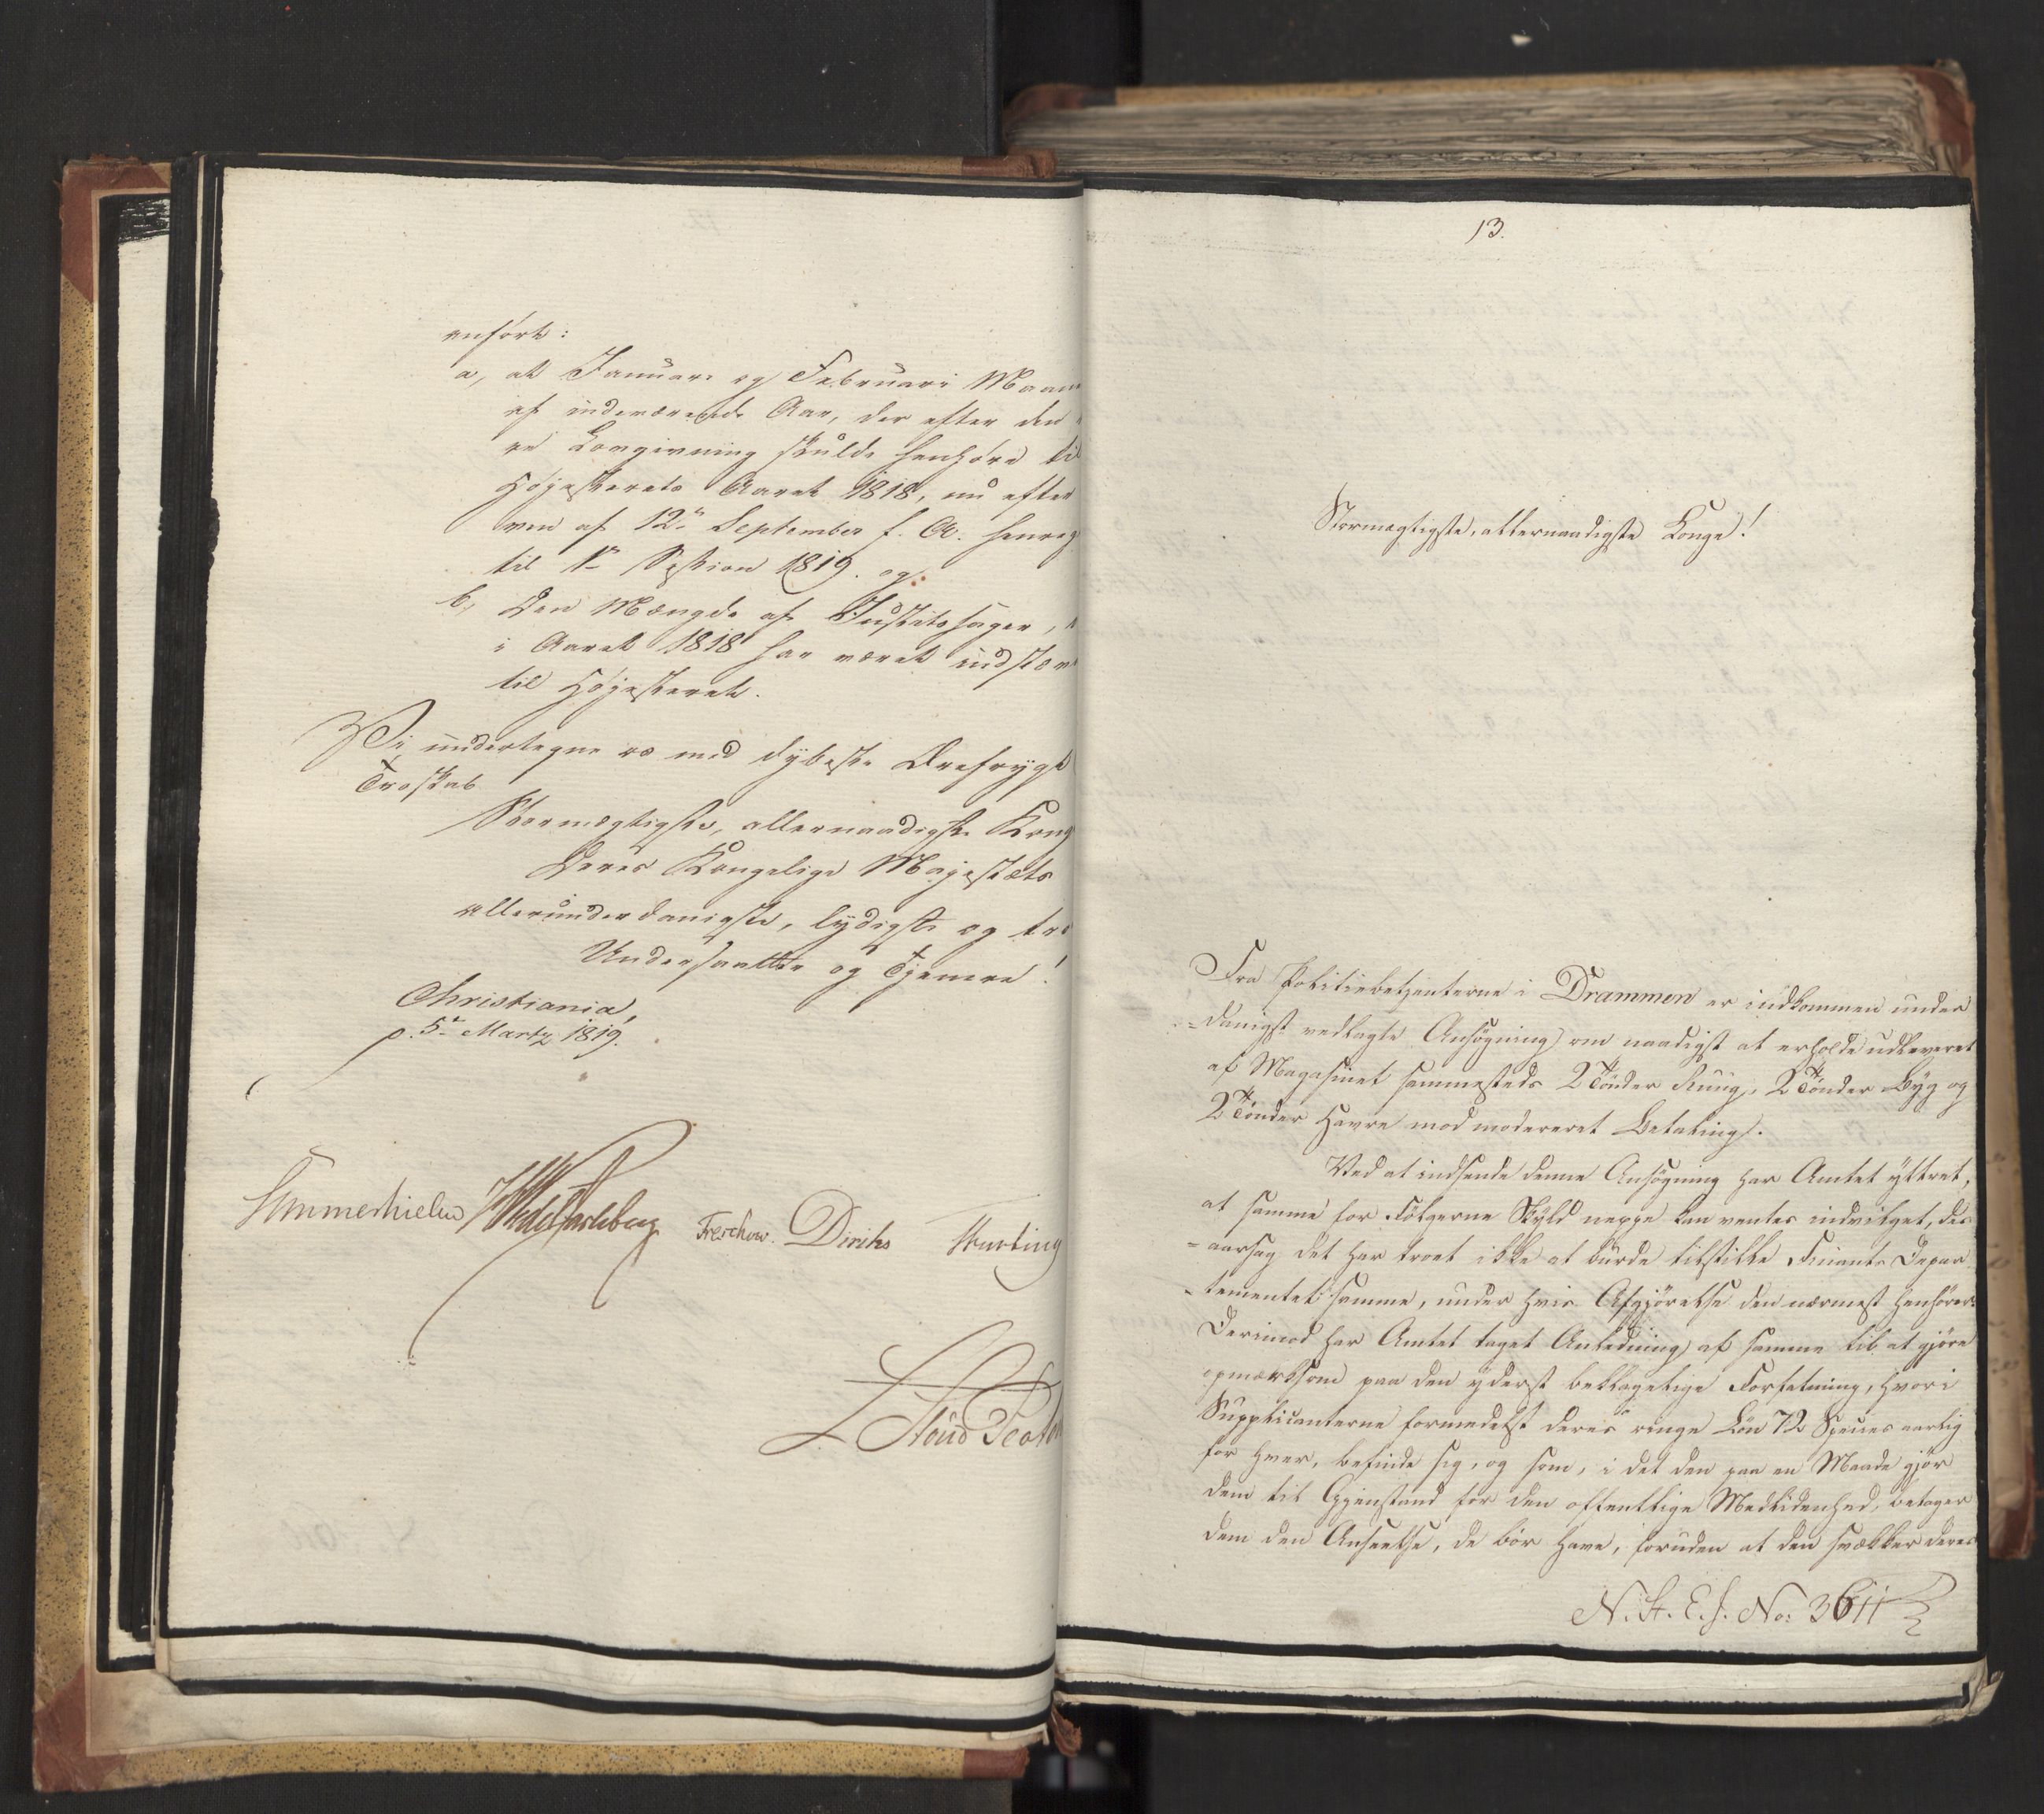 anført:
a, at Januar og Februari Maan
af indeværende Aar, der efter den
re Lovgivning skulde henhøre til
Høiesterets Aaret 1818, nu efter
ven af 12te September f. A. henreg
til 1ste Session 1819. og
b, Den Mængde af Justitssager,
i Aaret 1818 har været indstævn
til Høiesteret.
Vi undertegne os med dybeste Ærefrygt
Troskab
Stormægtigste, allernaadigste Kong
Deres Kongelige Majestæts
allerunderdanigste, lydigste og tro
Undersaatter og Tjenere!
Christiania,
d. 5te Martz 1819.
Sommerhielm Wedel Jarlsberg Treschow. Diriks
13.
Stormægtigste, allernaadigste Konge!
Fra Politiebetjenterne i Drammen er indkommen under
=danigst vedlagte Ansøgning om naadigst at erholde udleveret
af Magasinet sammesteds 2 Tönder Ruug, 2 Tönder Byg og
2 Tönder Havre mod modereret Betaling.
Ved at indsende denne Ansøgning har Amtet yttret,
at samme for Fölgerne Skyld neppe kan ventes indvilget, des
=aarsag det har troet ikke at burde tilstille Finants Depar
=tementet samme, under hvis Afgjörelse den nærmest henhörer.
Derimod har Amtet taget Anledning af samme til at gjöre
opmærksom paa den yderst beklagelige Forfatning, hvori
Supplicanterne formedelst deres ringe Lön 72 Specier aarlig
for hver, befinde sig, og som, i det den paa en Maade gjör
dem til Gjenstand for den offentlige Medlidenhed, betager
dem den Anseelse, de bör have, foruden at den svækker deres
N. St. E. J. No: 3611